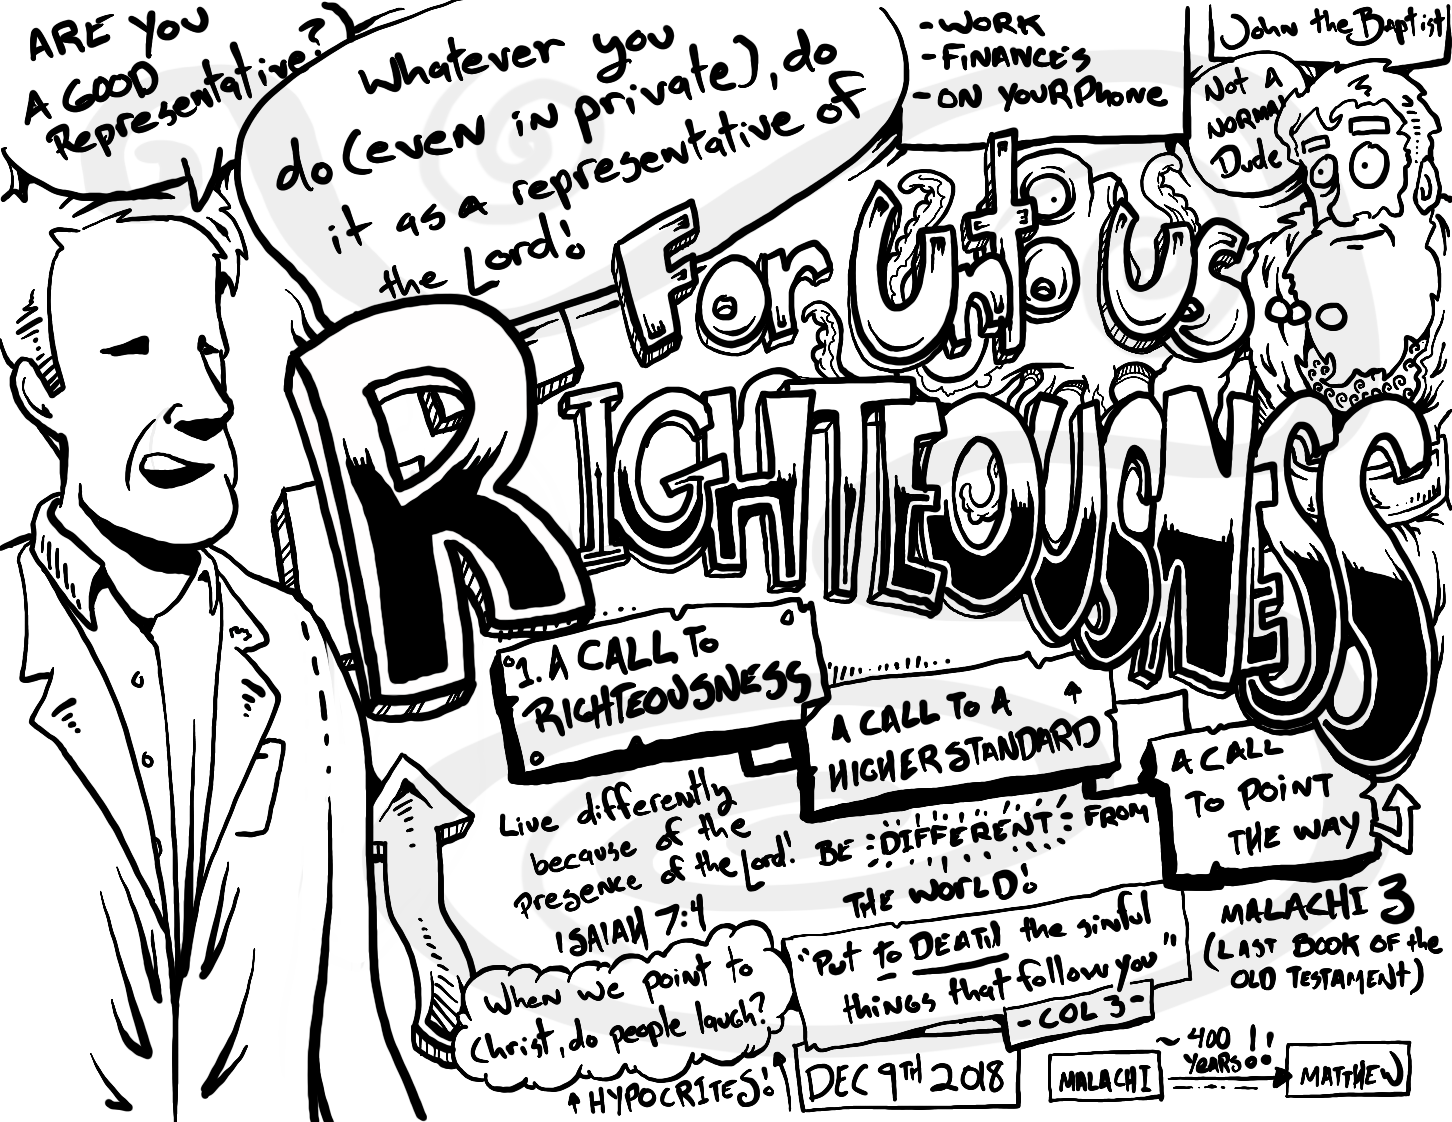 ARE YOU
A GOOD
Representative?
Whatever you
do (even in private), do
it as a representative of
the Lord!
- WORK
- FINANCES
- ON YOUR Phone
John the Baptist
Not A
NORMAL
Dude
For Unto Us
RIGHTEOUSNESS
1. A CALL To
RIGHTEOUSNESS
A CALL To A
HIGHER STANDARD
A CALL
To POINT
THE WAY
Live differently
because of the
presence of the Lord!
ISAIAH 7:4
BE DIFFERENT FROM
THE WORLD!
"Put to DEATH the sinful
things that follow you"
- COL 3 -
MALACHI 3
(LAST BOOK OF the
OLD TESTAMENT)
When we point to
Christ, do people laugh?
HYPOCRITES!
DEC 9TH 2018
MALACHI
~ 400
YEARS!!
MATTHEW